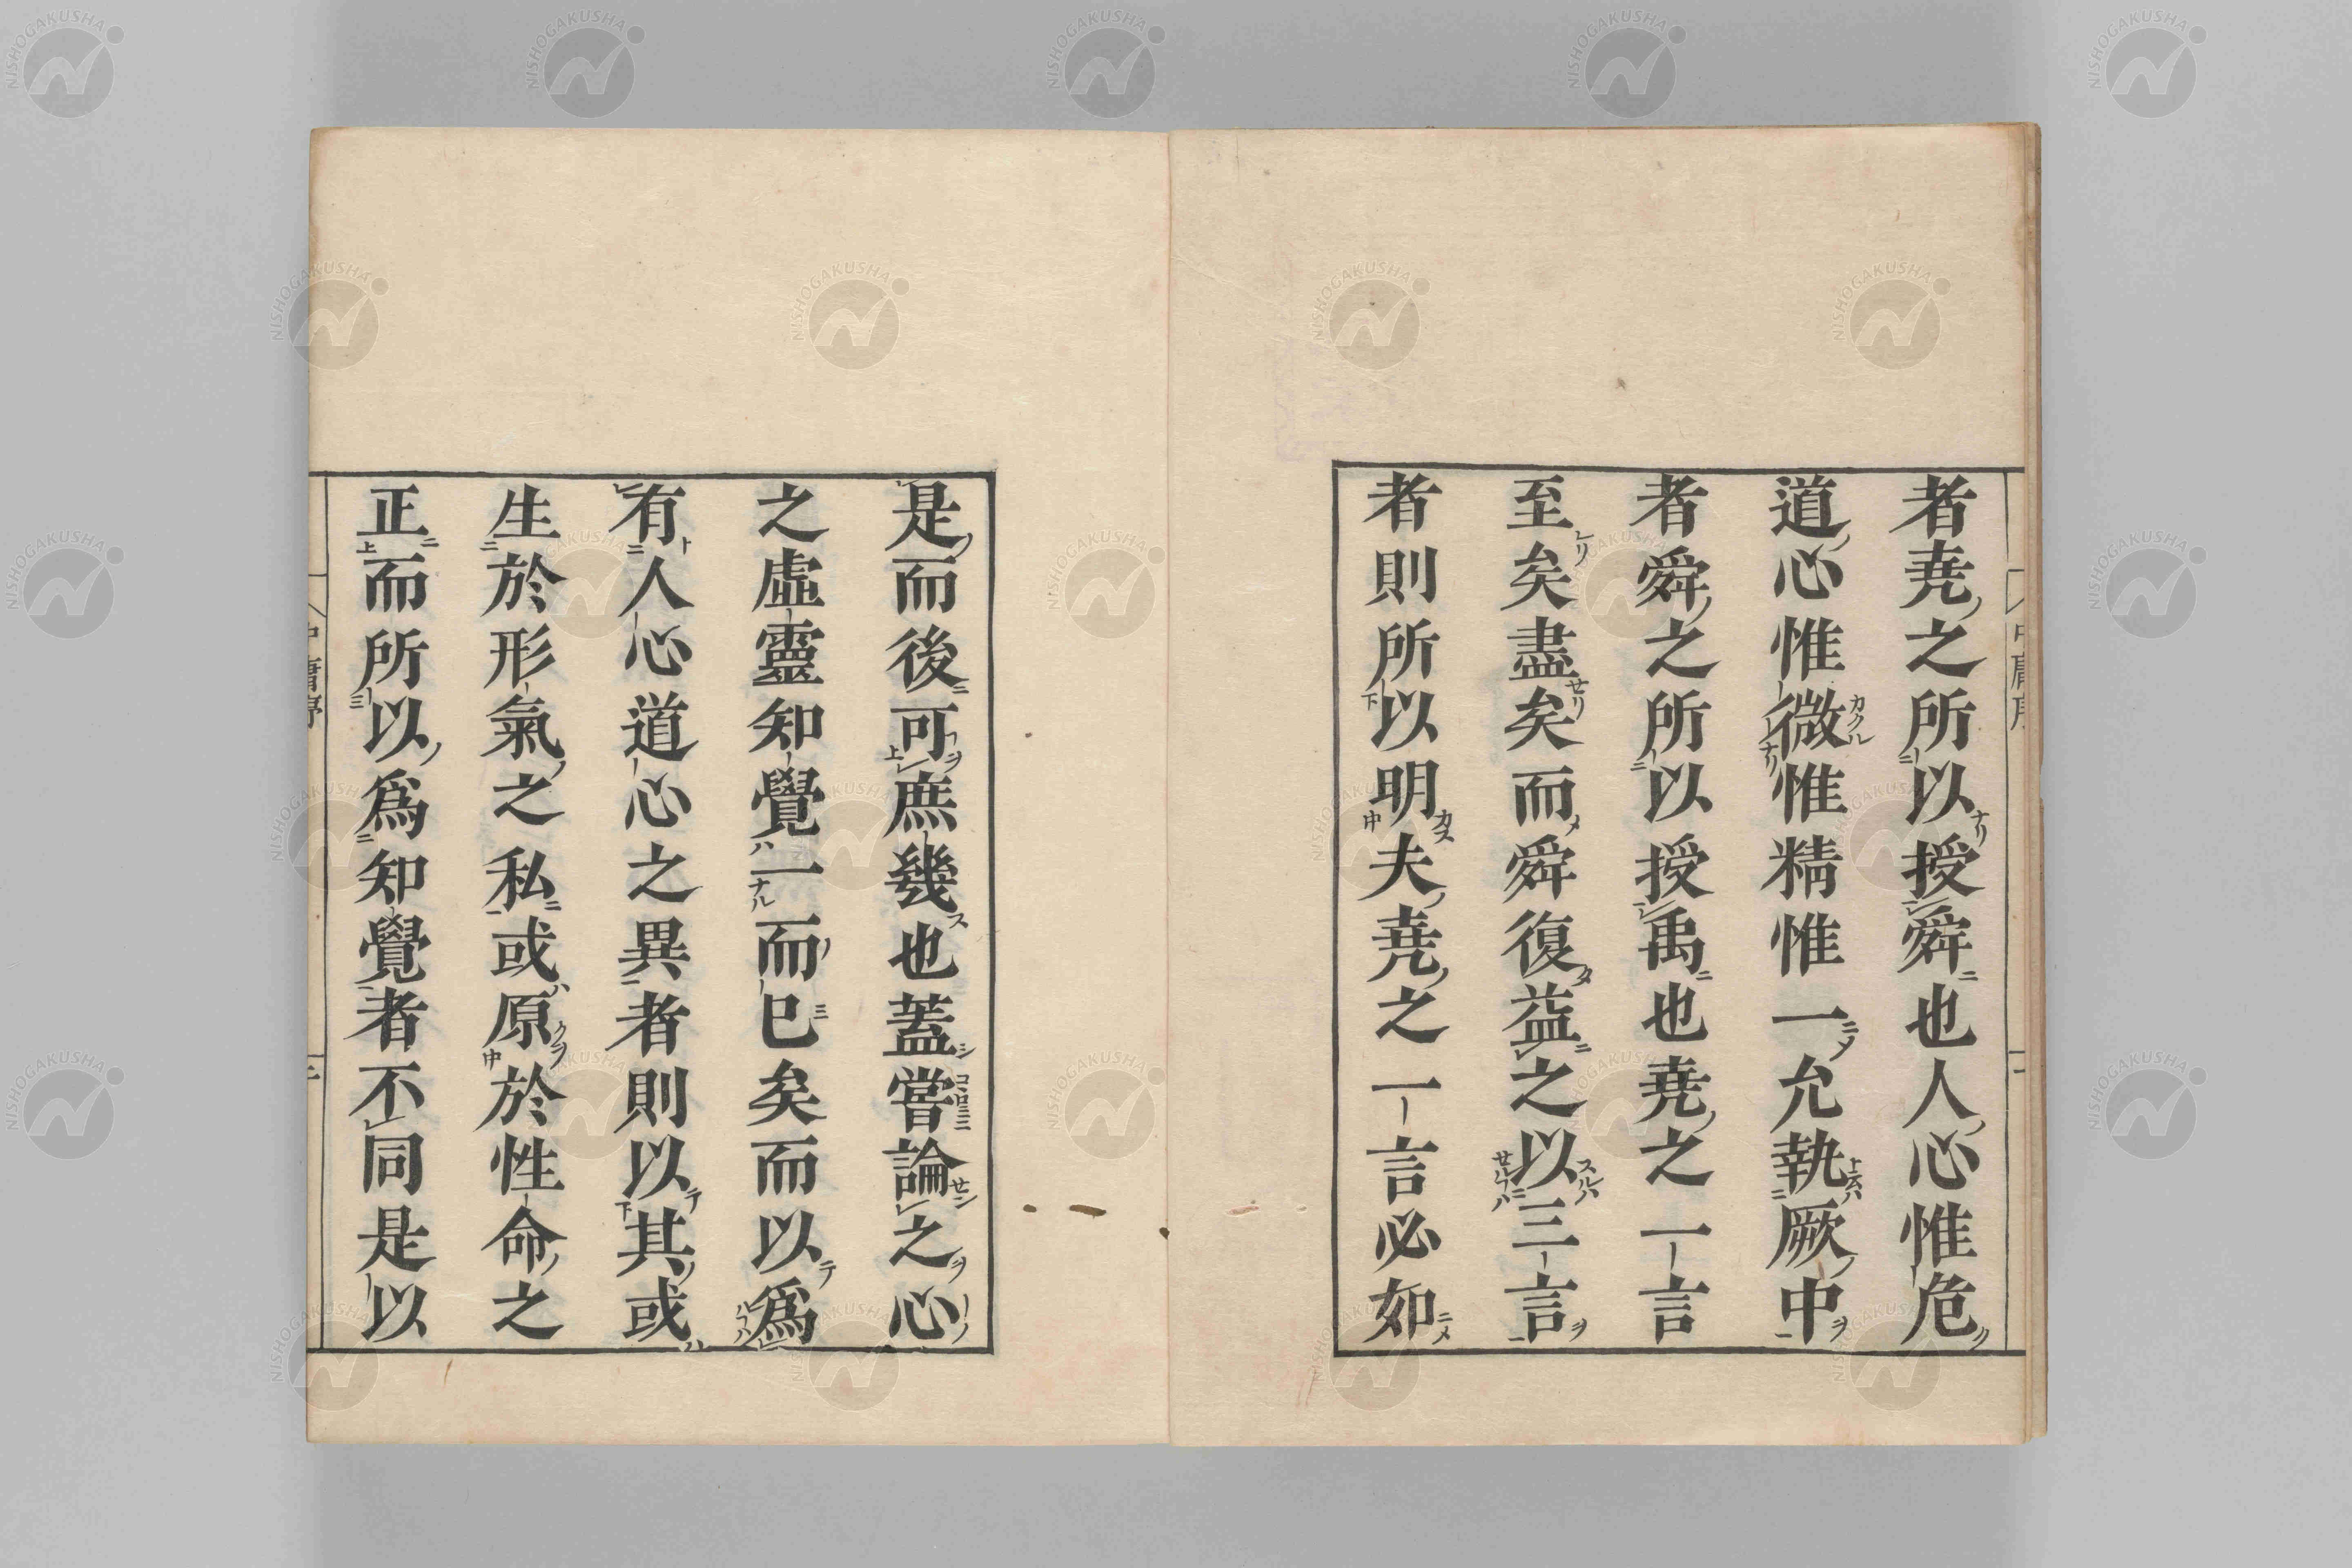 者堯之所以授舜也人心惟危
道心惟微惟精惟一允執厥中
者舜之所以授禹也堯之一言
至矣盡矣而舜復益之以三言
者則所以明夫堯之一言必如
是而後可庶幾也蓋嘗論之心
之虛靈知覺一而已矣而以爲
有人心道心之異者則以其或
生於形氣之私或原於性命之
正而所以爲知覺者不同是以
NISHOGAKUSHA